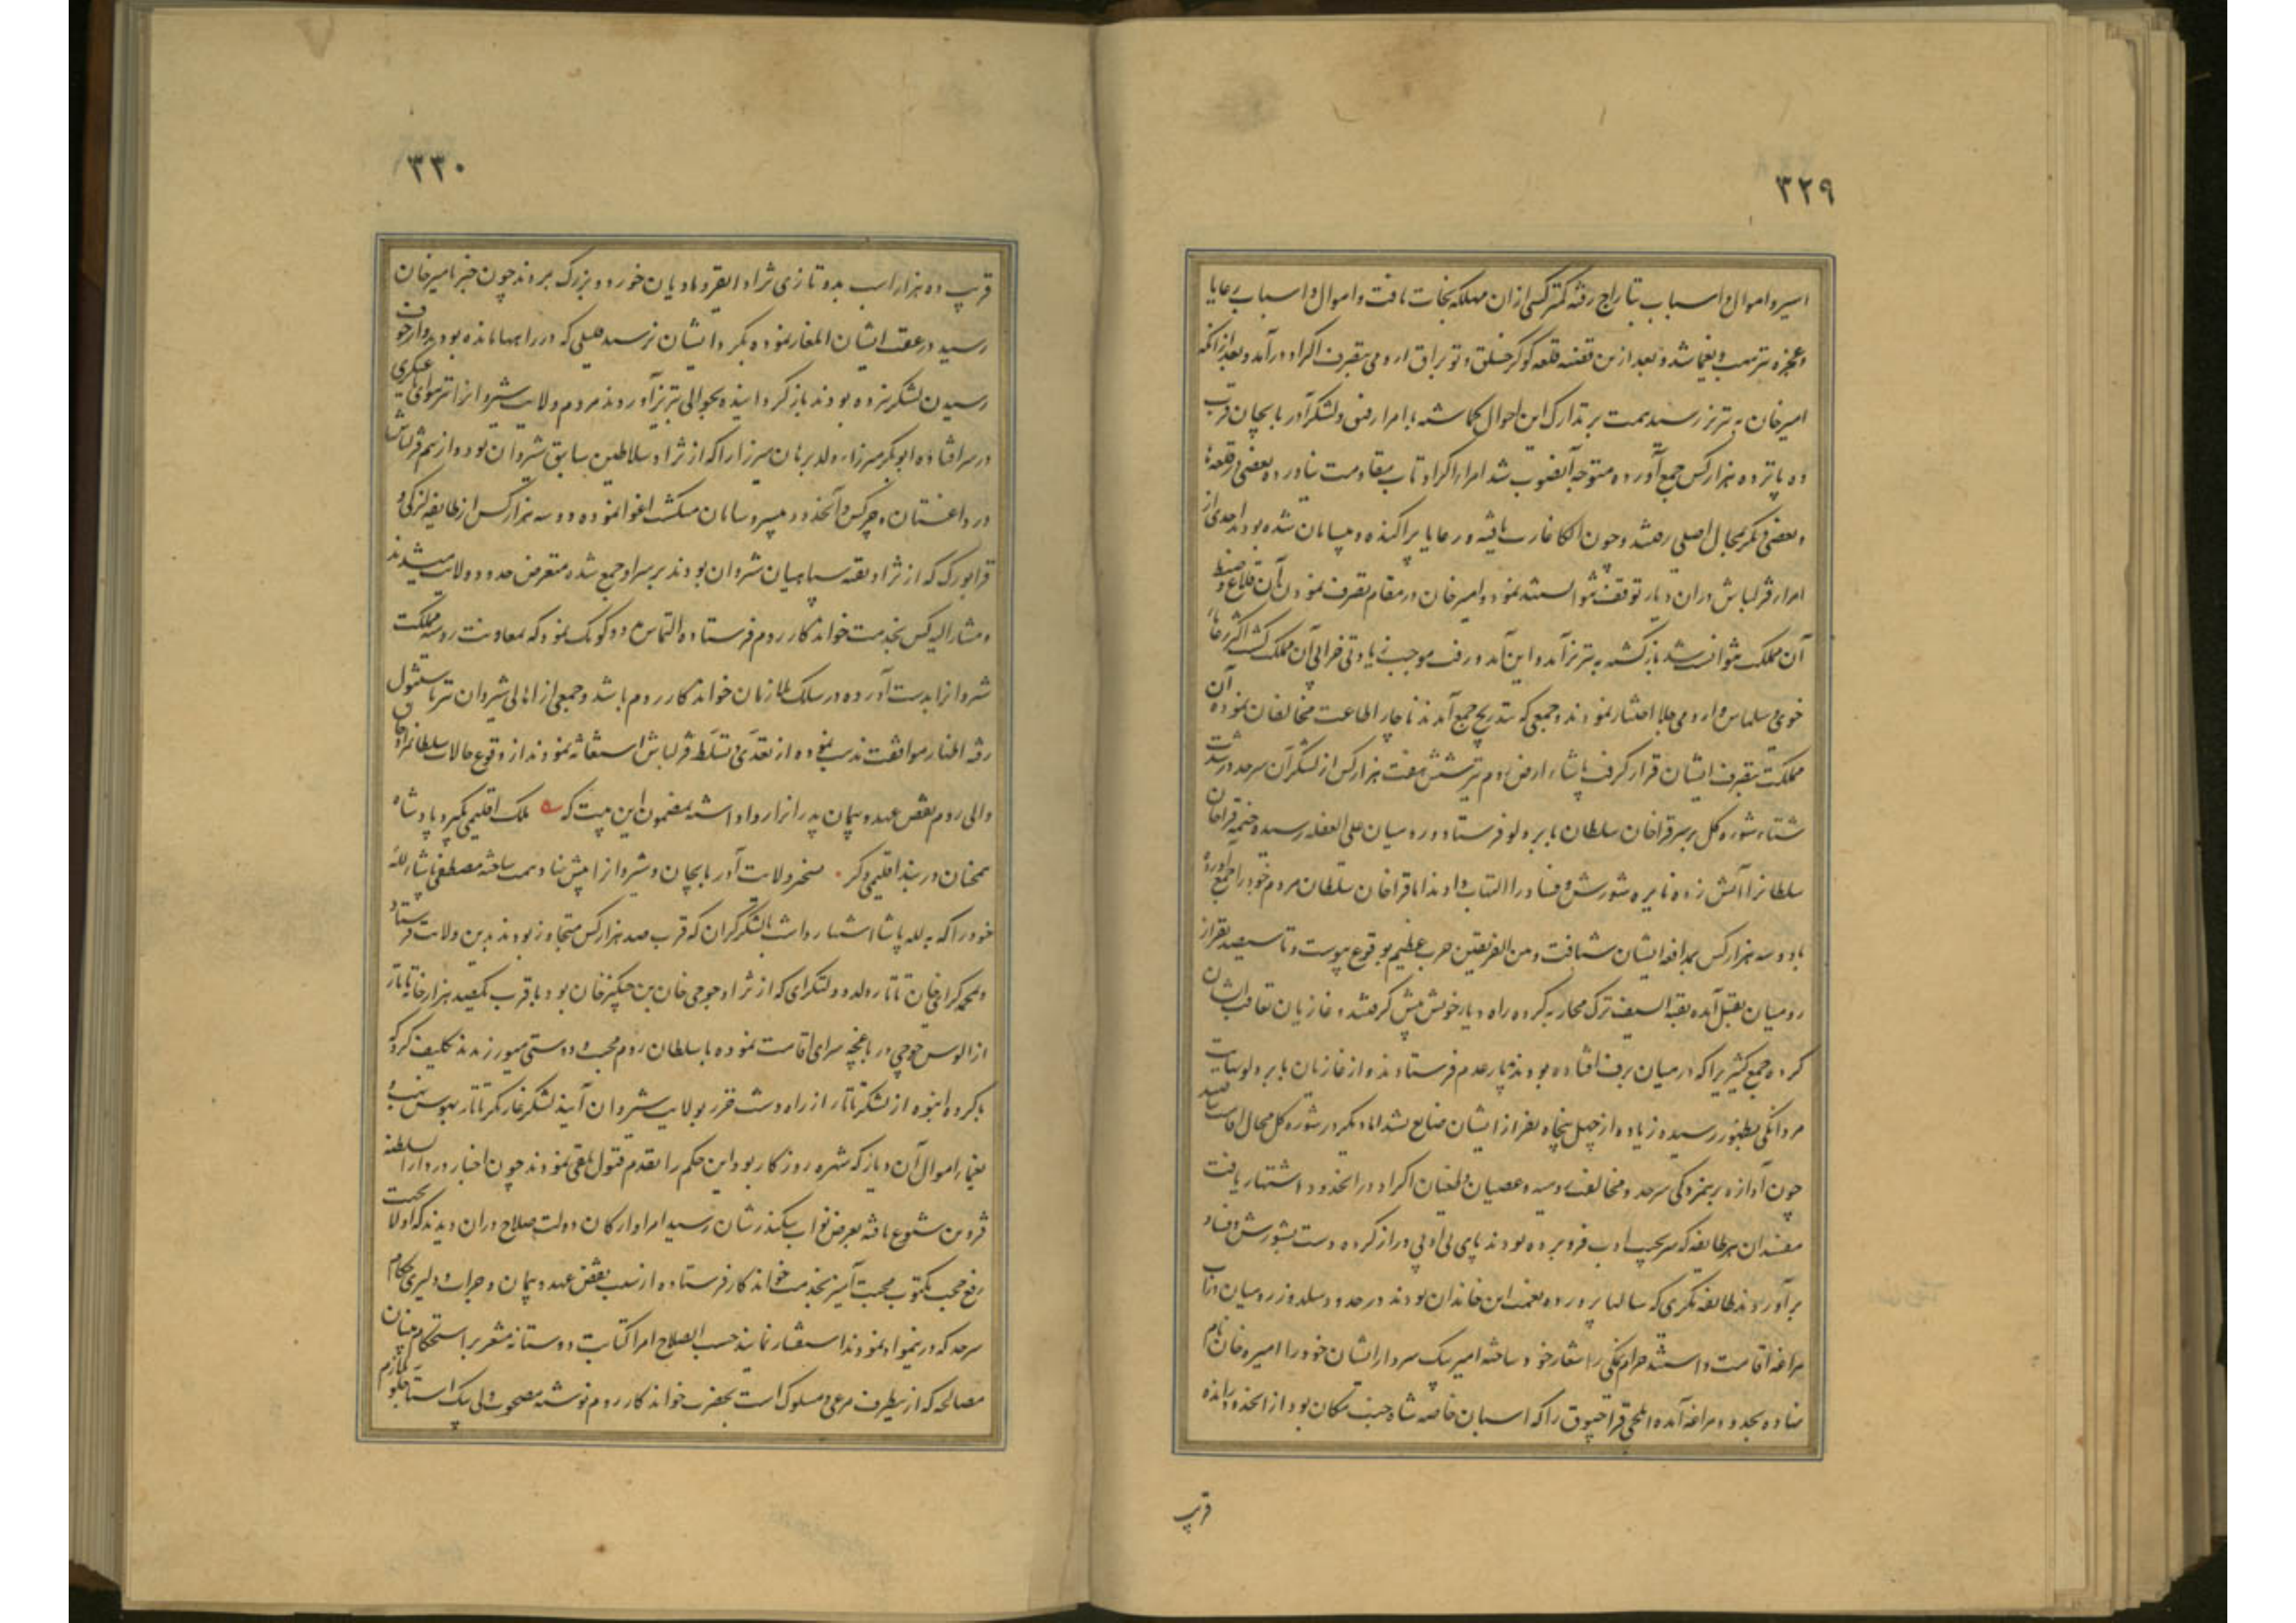 ۳۲۹
اسیر و اموال و اسباب بتاراج رفته کمتر کسی از ان مهلکه نجات یافت و اموال و اسباب رعایا
و عجزه نیز نهب و یغما شد و بعد ازین قضیه قلعه کوکرخلق و توبراق ارومی بتصرف اکراد درآمد و بعد از آنکه
امیرخان به تبریز رسید همت بر تدارک این احوال کماشته با امراء رفیق و لشکر آذربایجان قریب
ده پانزده هزار کس جمع آورده متوجه آنصوب شد امراء اکراد تاب مقاومت نیاورده بعضی در قلعه‌ها
و بعضی دیکر بمحال اصلی رفتند و چون الکا غارت یافته و رعایا پراکنده و بیسامان شده بودند احدی از
امراء قزلباش در ان دیار توقف نتوانستند نمود و امیرخان در مقام تصرف نمودن آن قلاع و ضبط
آن مملکت نتوانست شد بازکشته به تبریز آمد و این آمد و رفت موجب زیادتی خرابی آن مملکت کشت اکثر رعایاء
خوی و سلماس و ارومی جلا اختیار نمودند و جمعی که بتدریج جمع آمدند ناچار اطاعت مخالفان نموده آن
مملکت بتصرف ایشان قرار کرفت پاشاء ارض روم نیز شش هفت هزار کس از لشکر آن سرحد در شدت
شتاء بشوره کل بر سر قراخان سلطان بایبردلو فرستاد و رومیان علی الغفله رسیده خیمه قراخان
سلطانرا آتش زده نایره شورش و فساد را التهاب دادند اما قراخان سلطان مردم خود را جمع آورده
با دو سه هزار کس بمدافعه ایشان شتافت و من الفریقین حرب عظیم بوقوع پیوست و تا سیصد نفر از
رومیان بقتل آمده بقیة السیف ترک محاربه کرده راه دیار خویش پیش کرفتند و غازیان تعاقب ایشان
کرده جمع کثیریرا که در میان برف افتاده بودند بدیار عدم فرستادند و از غازیان بایبردلو نهایت
مردانکی بظهور رسیده زیاده از چهل پنجاه نفر از ایشان ضایع نشد اما دیکر در شوره کل مجال اقامت
چون آوازه برهمزدکی سرحد و مخالفت رومیه و عصیان و طغیان اکراد در انحدود اشتهار یافت
مفسدان هر طایفه که سر بجیب ادب فرو برده بودند پای بی ادبی دراز کرده دست بشورش و فساد
برآوردند طایفه مکری که سالها پرورده نعمت این خاندان بودند در حدود سلدوز و میان دوآب
مراغه اقامت داشتند حرام نمکی را شعار خود ساخته امیر بیک سردار ایشان خود را امیره خان نام
نهاده بحدود مراغه آمده ایلخی قراجبوق را که اسبان خاصه شاه جنت مکان بود از انحدود رانده
قریب
۳۳۰
قریب ده هزار اسب بدو تازی نژاد ایقر و مادیان خورد و بزرک بردند چون خبر بامیرخان
رسید در عقب ایشان ایلغار نموده بکرد ایشان نرسید قلیلی که در راهها مانده بود و از خوف
رسیدن لشکر نزده بودند بازکردانیده بحوالی تبریز آوردند مردم ولایت شیروانرا نیز سودای عسکری
در سر افتاده ابوبکر میرزاء ولد برهان میرزا را که از نژاد سلاطین سابق شیروان بود و از بیم قزلباش
در داغستان و چرکس و آنحدود بیسر و سامان میکشت اغوا نموده دو سه هزار کس از طایفه لزکی و
قرابورک که از نژاد بقیه سپاهیان شروان بودند بر سر او جمع شده متعرض حدود ولایت میشدند
و مشارالیه کس بخدمت خواندکار روم فرستاده التماس مدد و کومک نمود که بمعاونت رومیه مملکت
شروانرا بدست آورده در سلک ملازمان خواندکار روم باشد و جمعی از اهالی شیروان نیز باستنبول
رفته اظهار موافقت مذهب نموده از تعدی و تسلط قزلباش استغاثه نمودند از وقوع حالات سلطانمراد خان
والی روم نقض عهد و پیمان پدر را نزا روا داشته بمضمون این بیت که ملک اقلیمی بکیرد پادشاه
همچنان در بند اقلیمی دکر تسخیر ولایت آذربایجان و شیروانرا پیش نهاد همت ساخته مصطفی پاشاء لله
خود را که به لله پاشا اشتهار داشت با لشکر کران که قریب صد هزار کس متجاوز بودند بدین ولایت فرستاد
و محمد کرای خان تاتار ولد دولتکرای که از نژاد جوجی خان بن چنکیزخان بود و با قریب یکصد هزار خانه تاتار
از الوس جوجی در باغچه سرای اقامت نموده با سلطان روم محبت و دوستی میورزیدند تکلیف کرد که
با کروه انبوه از لشکر تاتار از راه دشت خزر بولایت شیروان آیند لشکر غارتکر تاتار بهوس نهب و
یغماء اموال آن دیار که شهره روزکار بود این حکم را بقدم قبول تلقی نمودند چون اخبار در دار السلطنه
قزوین شیوع یافته بعرض نواب سکندرشان رسید امراء و ارکان دولت صلاح در ان دیدند که اولا بجهت
رفع حجت مکتوب محبت آمیز بخدمت خواندکار فرستاده از سبب نقض عهد و پیمان و جرات و دلیری حکام
سرحد که درینمواد نمودند استفسار نمایند حسب الصلاح امراء کتابت دوستانه مشعر بر استحکام مبانی
مصالحه که ازینطرف مرعی و مسلوک است بحضرت خواندکار روم نوشته مصحوب ولی بیک استاجلو ملازم